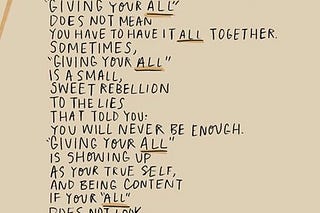 "GIVING YOUR ALL"
DOES NOT MEAN
YOU HAVE TO HAVE IT ALL TOGETHER.
SOMETIMES,
"GIVING YOUR ALL"
IS A SMALL,
SWEET REBELLION
TO THE LIES
THAT TOLD YOU:
YOU WILL NEVER BE ENOUGH.
"GIVING YOUR ALL"
IS SHOWING UP
AS YOUR TRUE SELF,
AND BEING CONTENT
IF YOUR "ALL"
DOES NOT LOOK